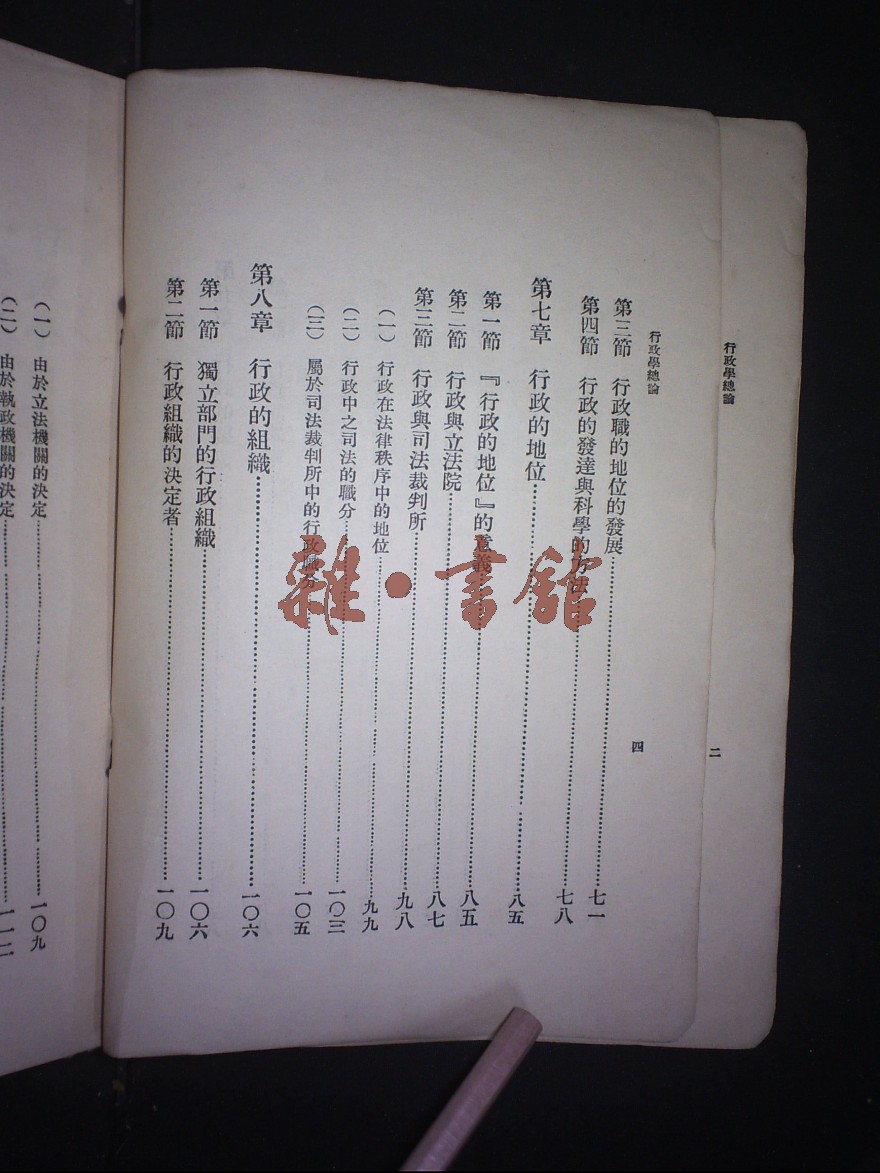 行政學總論
二
行政學總論
四
第三節 行政職的地位的發展……七一
第四節 行政的發達與科學的方法……七八
第七章 行政的地位……八五
第一節 『行政的地位』的意義……八五
第二節 行政與立法院……八七
第三節 行政與司法裁判所……九八
(一) 行政在法律秩序中的地位……九九
(二) 行政中之司法的職分……一〇三
(三) 屬於司法裁判所中的行政職分……一〇五
第八章 行政的組織……一〇六
第一節 獨立部門的行政組織……一〇六
第二節 行政組織的決定者……一〇九
(一) 由於立法機關的決定……一〇九
(二) 由於執政機關的決定……一一二
雜·書館